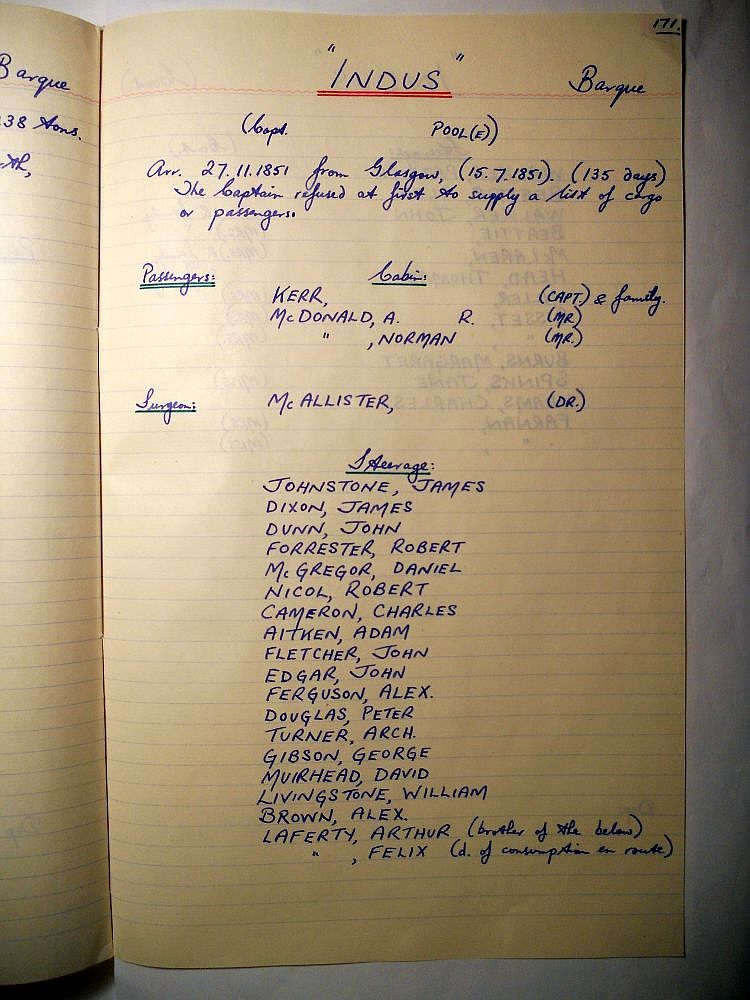 171.
"INDUS" Barque
(Capt. POOL(E))
Arr. 27.11.1851 from Glasgow, (15.7.1851). (135 days)
The Captain refused at first to supply a list of cargo
or passengers.
Passengers: Cabin:
KERR, (CAPT.) & family.
McDONALD, A. R. (MR)
" , NORMAN (MR.)
Surgeon: McALLISTER, (DR.)
Steerage:
JOHNSTONE, JAMES
DIXON, JAMES
DUNN, JOHN
FORRESTER, ROBERT
McGREGOR, DANIEL
NICOL, ROBERT
CAMERON, CHARLES
AITKEN, ADAM
FLETCHER, JOHN
EDGAR, JOHN
FERGUSON, ALEX.
DOUGLAS, PETER
TURNER, ARCH.
GIBSON, GEORGE
MUIRHEAD, DAVID
LIVINGSTONE, WILLIAM
BROWN, ALEX.
LAFERTY, ARTHUR (brother of the below)
" , FELIX (d. of consumption en route)
Barque
38 tons.